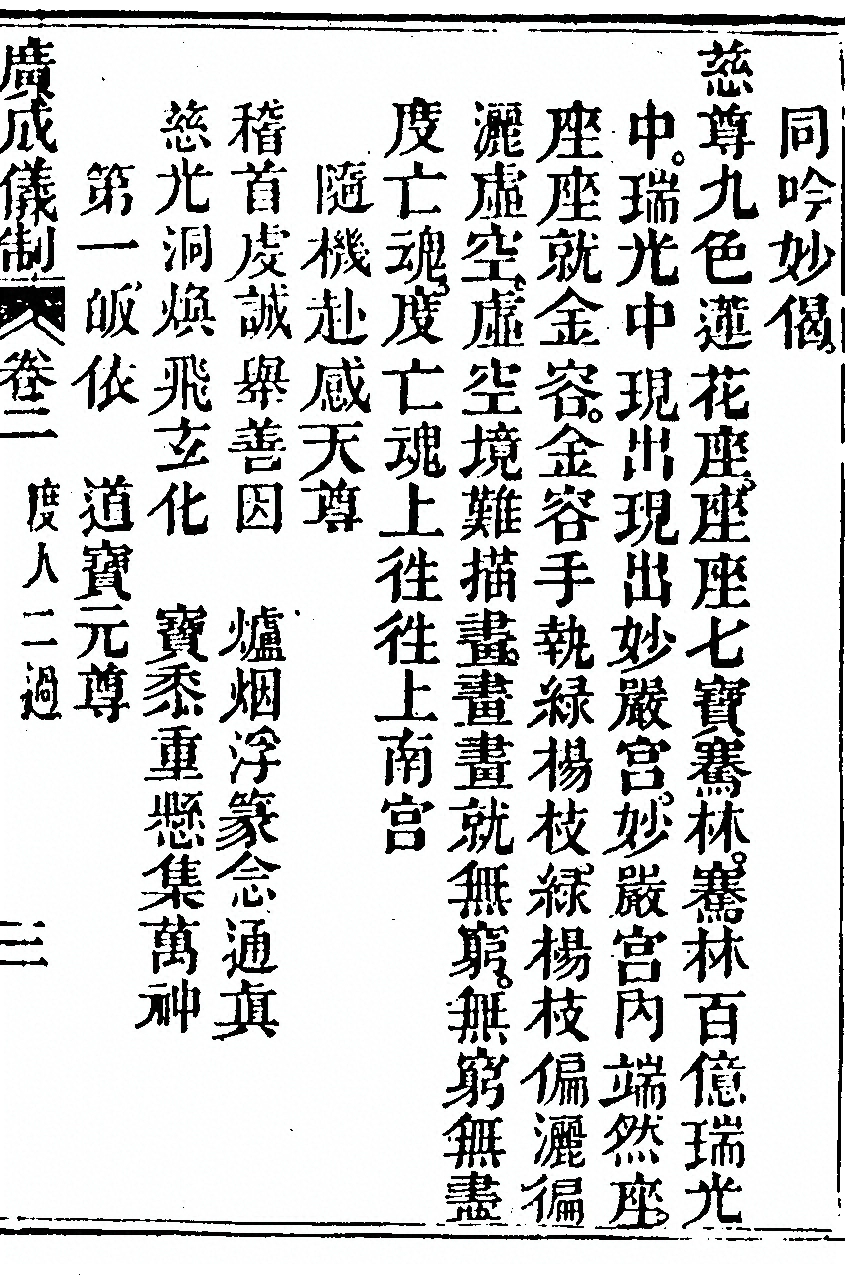 同吟妙偈。
慈尊九色蓮花座。座座七寶騫林。騫林百億瑞光
中。瑞光中現出現出妙嚴宫。妙嚴宫内端然座。
座座就金容。金容手執綠楊枝。綠楊枝偏灑徧
灑虛空。虛空境難描畫。畫畫就無窮。無窮無盡
度亡魂。度亡魂上徃徃上南宫
隨機赴感天尊
稽首虔誠舉善因　爐烟浮篆念通真
慈光洞煥飛玄化　寶黍重懸集萬神
第一皈依　道寶元尊
廣成儀制　卷二　度人二過　二